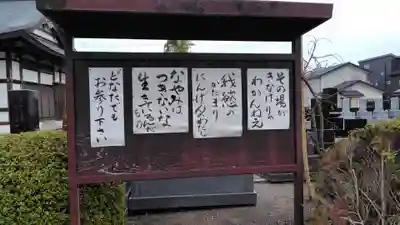 その場が
きなけりゃ
わかんねえ
我慾の
かたまり
にんげんのわたし
なやみは
つきないな
生きているんだもの
どなたでも
お参り下さい